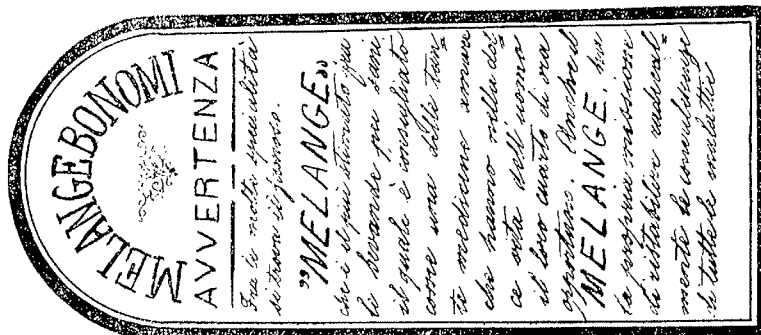 MELANGE BONOMI
AVVERTENZA
Fra le molte specialità
si trova il famoso.
"MELANGE"
che è il più stimato
le bevande per sani
il quale è consigliato
come una delle tan=
te medicine amare
che hanno nella dol
ce vita dell'uomo
il loro cuarto di ora
oportuno.
MELANGE, ha
la propria missione
di ristabilire radical=
mente le
di tutte le malattie